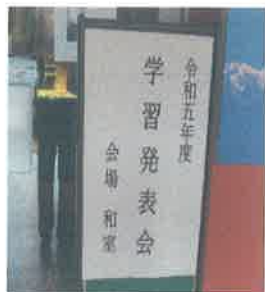 令和五年度
学習発表会
会場 和室